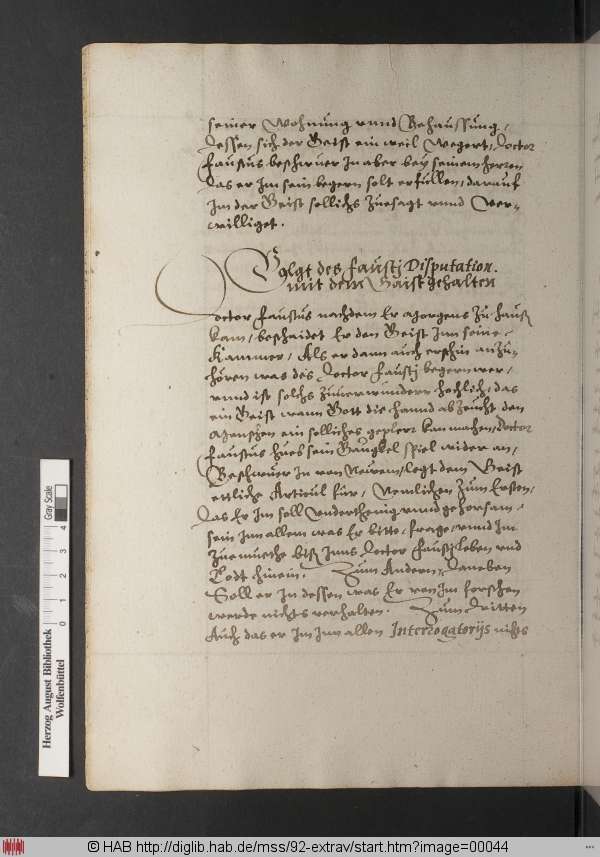 seiner Wohnung vnnd Behaussung,
dessen sich der Geist ein weil Wegert, Doctor
Faustus beschwuer In aber bey seinem herren
das er Im sein begern solt erfüllen, darauf
Im der Geist sollichs zuesagt vnnd Ver-
williget.
Volgt des Faustj Disputation.
mit dem Gaist gehalten
Doctor Faustus nachdem Er Morgens zu hauß
kam, beschaidet Er den Geist Inn seine
Kammer, Als er dann auch erschin anzu-
hören was des Doctor Faustj begern wer,
vnnd ist solchs zuuerwundern hochlich, das
ein Geist wann Gott die hannd abzeucht den
Menschen ein solliches geplerr kan machen, Doctor
Faustus hueb sein Gaugkel spiel wider an,
Beschwuer In von Newem, legt dem Geist
ettliche Articul für, Nemlichen Zum Ersten,
das Er Im soll vnderthenig vnnd gehorsam
sein Inn allem was Er bitte, frage, vnnd Im
Zuemuethe biß Inns Doctor Faustj Leben vnd
Todt hinein. Zum Andern, daneben
Soll er In dessen was Er von Im forschen
werde nichts verhalten. Zum dritten
Auch das er Im Inn allen Interrogatorijs nichts
Herzog August Bibliothek
Wolfenbüttel
0 1 2 3 4
Gray Scale
© HAB http://diglib.hab.de/mss/92-extrav/start.htm?image=00044